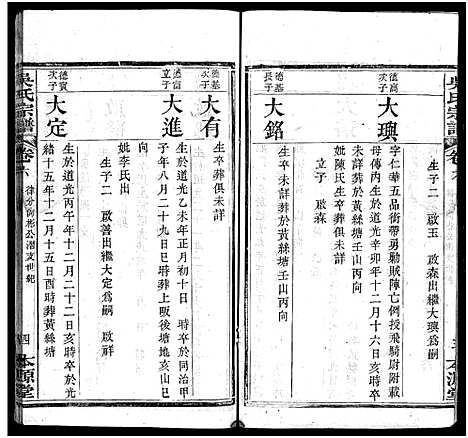 吳氏宗譜
卷六
本源堂
生子二 啟玉 啟森出繼大璵爲嗣
德高次子
大璵
字仁華五品銜帶勇勦賊陣亡例授飛騎尉附載
母傳內生於道光辛卯年十二月十六日亥時卒
未詳葬於黃絲塘壬山丙向
妣陳氏生卒葬於黃絲塘壬山丙向
立子 啟森
德基長子
大銘
生卒未詳葬於黃絲塘壬山丙向
德基次子
大有
生卒葬俱未詳
德富立子
大進
生於道光乙未年正月初十日 時卒於同治甲
子年八月二十九日巳時葬上阪後塘地亥山巳
向
妣李氏出
生子二 啟善出繼大定爲嗣 啟祥
德寶次子
大定
生於道光丙午年十二月二十二日亥時卒於光
緒十五年十二月十五日酉時葬黃絲塘
吳氏宗譜
卷六
律分尚彬公濳支世紀
四
本源堂